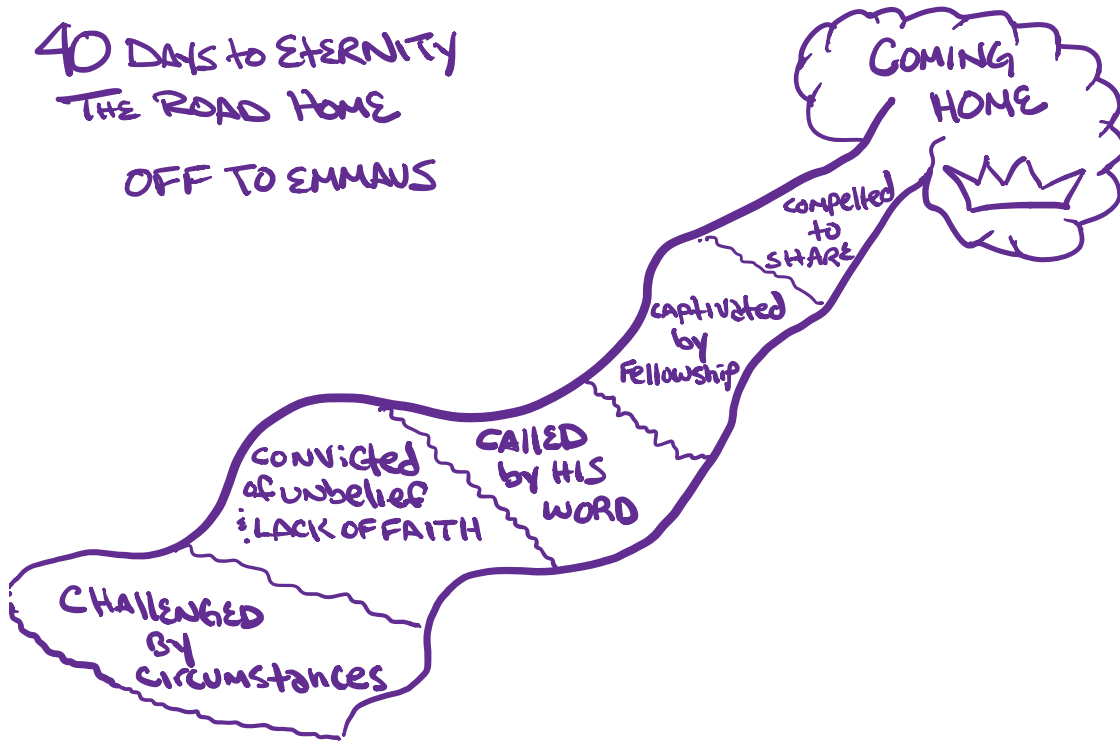 40 DAYS to ETERNITY
THE ROAD HOME
OFF TO EMMAUS
COMING
HOME
compelled
to
SHARE
CAPtIVAted
by
Fellowship
CALLED
by HIS
WORD
CONVICted
of UNbelief
& LACK OF FAITH
CHALLENGED
By
CIRCUMStANCES